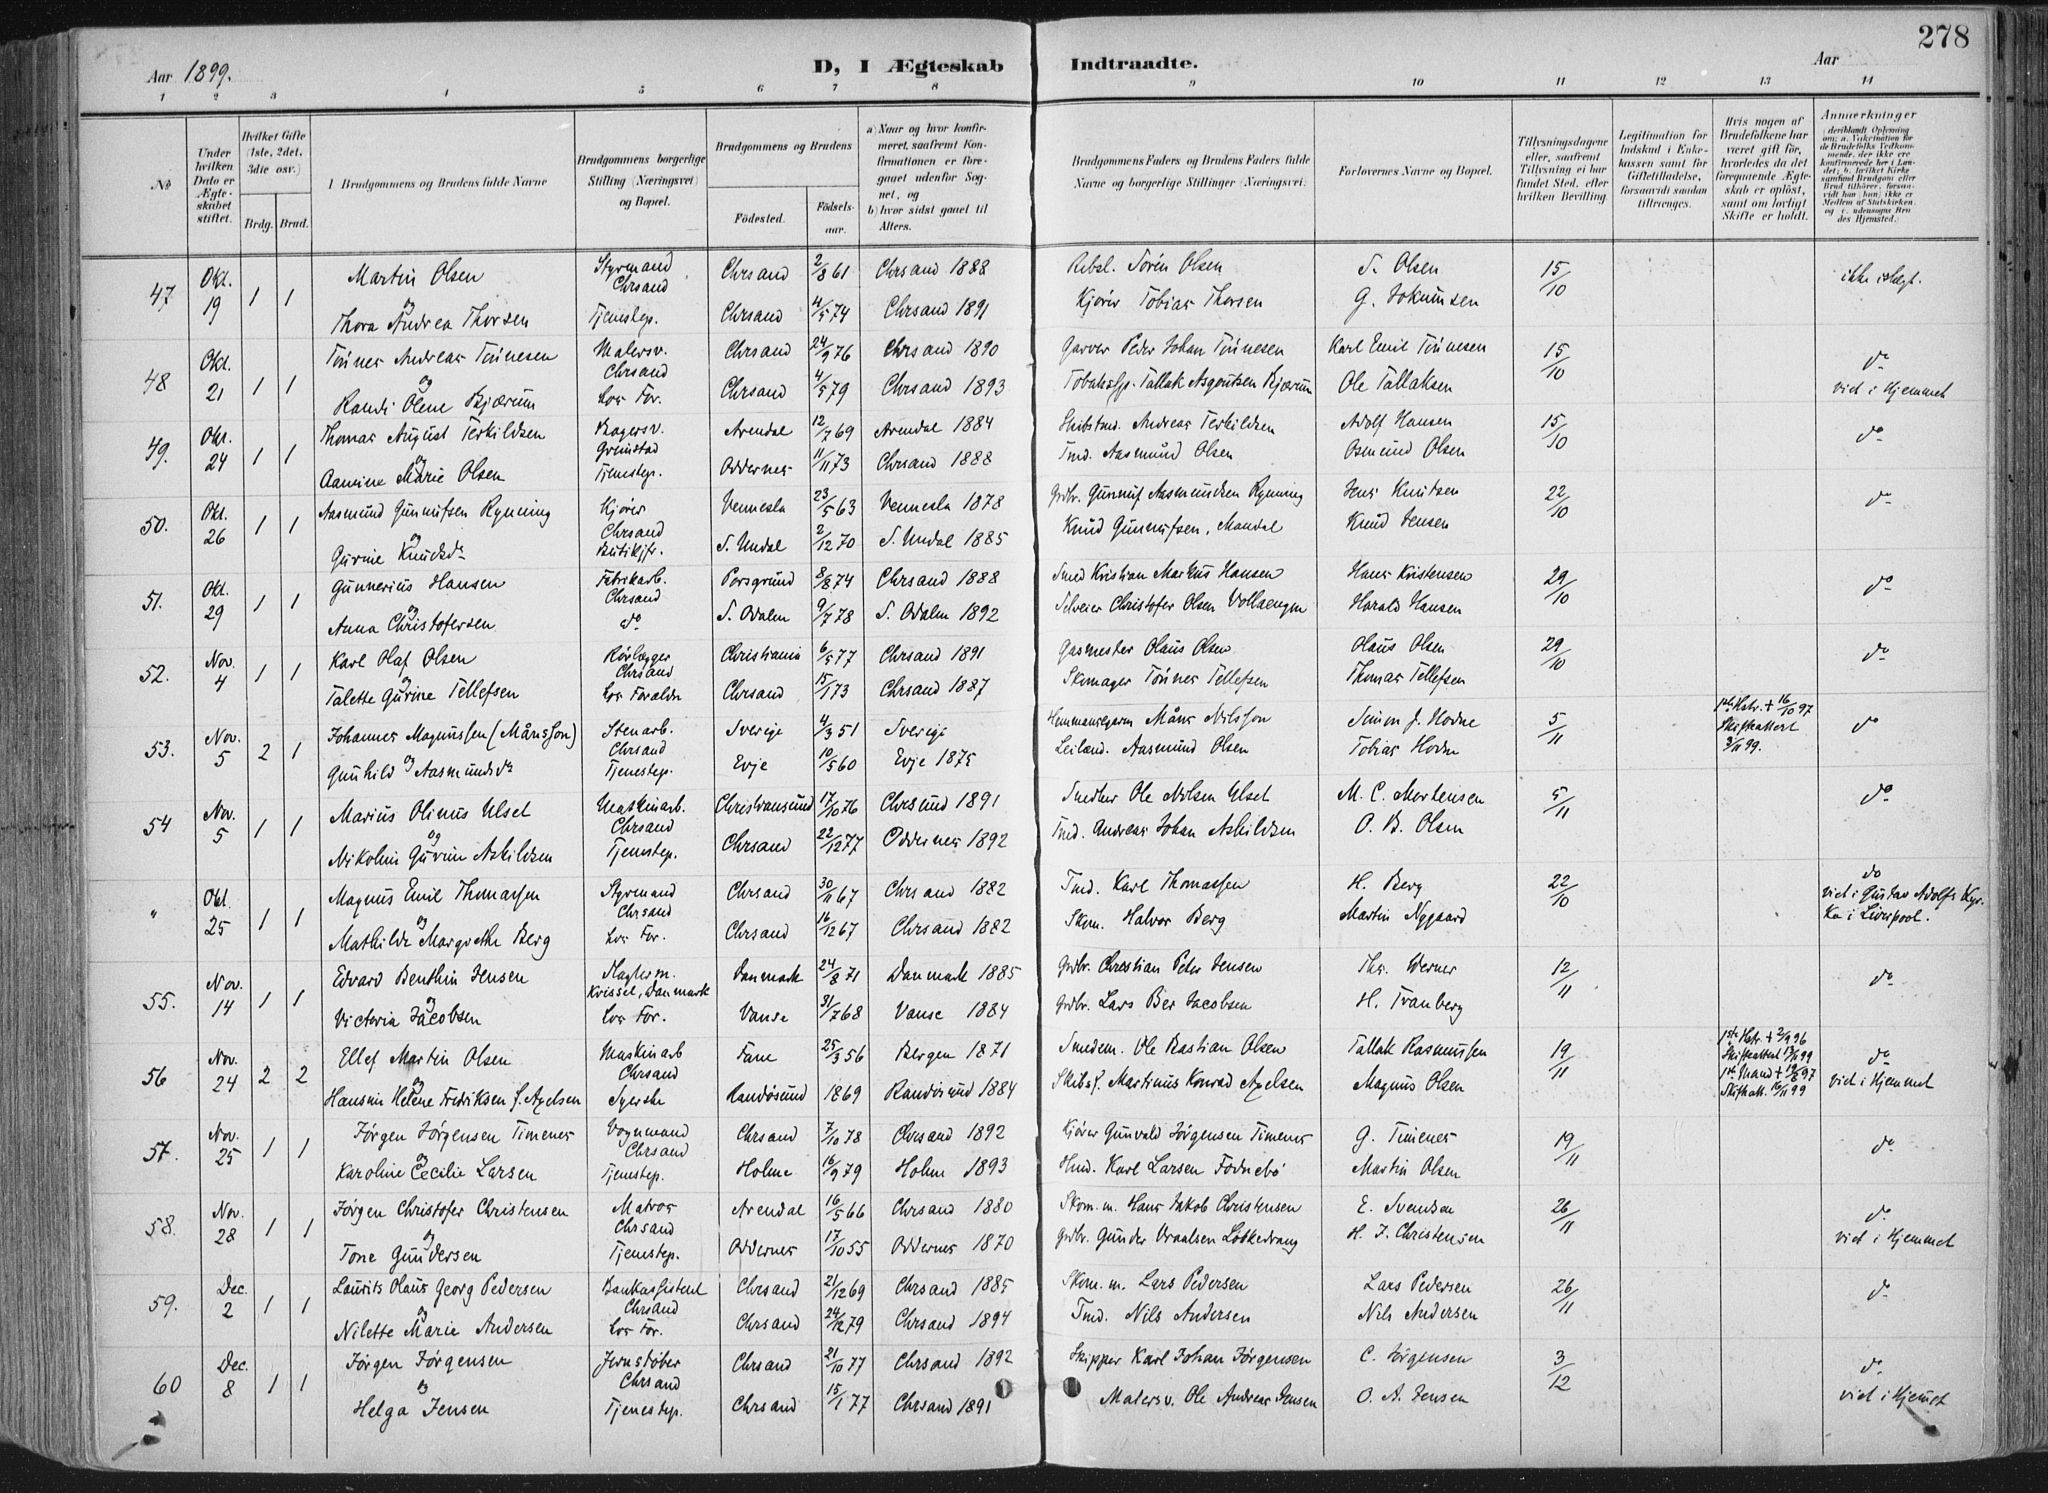 278
Aar 1899.
D, I Ægteskab Indtraadte.
Aar
1 2 3 4 5 6 7 8 9 10 11 12 13 14
No
Under hvilken Dato er Ægteskabet stiftet.
Hvilket Gifte (1ste, 2det, 3die osv.)
Brdg. Brud.
1 Brudgommens og Brudens fulde Navne
Brudgommens borgerlige Stilling (Næringsvei) og Bopæl.
Brudgommens og Brudens
Födested. Födselsaar.
a) Naar og hvor konfirmeret, saafremt Konfirmationen er foregaaet udenfor Sognet, og
b) hvor sidst gaaet til Alters.
Brudgommens Faders og Brudens Faders fulde Navne og borgerlige Stillinger (Næringsvei).
Forlovernes Navne og Bopæl.
Tillysningsdagene eller, saafremt Tillysning ei har fundet Sted, efter hvilken Bevilling.
Legitimation for Indskud i Enkekassen samt for Giftetilladelse, forsaavidt saadan tiltrænges.
Hvis nogen af Brudefolkene har været gift för, hvorledes da det foregaaende Ægteskab er oplöst, samt om lovligt Skifte er holdt.
Anmærkninger
47 Okt. 19 1 1 Martin Olsen Styrmand Chrsand Chrsand 2/8 61 Chrsand 1888 Rebsl. Sörin Olsen S. Olsen 15/10 ikke i Slegt.
og Thora Andrea Thorsen Tjenestep. Chrsand 4/5 74 Chrsand 1891 Kjörer Tobias Thorsen G. Jokumsen
48 Okt. 21 1 1 Tönnes Andreas Tönnesen Malersv. Chrsand Chrsand 24/9 76 Chrsand 1890 Garver Peder Johan Tönnesen Karl Emil Tönnesen 15/10 do
og Randi Olene Bjærum hos For. Chrsand 4/5 79 Chrsand 1893 Tallak Asgoutsen Bjærum Ole Tallaksen viet i Hjemmet
49. Okt. 24 1 1 Thomas August Terkildsen Bagersv. Grimstad Arendal 12/7 69 Arendal 1884 Andreas Terkildsen Adolf Hansen 15/10 do
og Aamine Marie Olsen Tjenestep. Oddernes 11/11 73 Chrsand 1888 Tmd. Aasmund Olsen Osmund Olsen
50. Okt. 26 1 1 Aasmund Gunnufsen Rynning Kjörer Chrsand Vennesla 23/5 63 Vennesla 1878 Grdbr. Gunnuf Aasmundsen Rynning Jens Knutsen 22/10 do
og Gurine Knudsdr Butikjfr. S. Undal 2/12 70 S. Undal 1885 Knud Gunnufsen, Mandal Knud Jensen
51. Okt. 29 1 1 Gunnerius Hansen Fabrikarb. Chrsand Porsgrund 8/8 74 Chrsand 1888 Smed Kristian Markus Hansen Hans Kristensen 29/10 do
og Anna Christofersen do S. Odalen 9/7 78 S. Odalen 1892 Christofer Olsen Vollaengen Harald Hansen
52. Nov. 4 1 1 Karl Olaf Olsen Rörlægger Chrsand Christiania 6/5 77 Chrsand 1891 Gasmester Olaus Olsen Olaus Olsen 29/10 do
og Talette Gurine Tellefsen hos Foraldre Chrsand 15/1 73 Chrsand 1887 Skomager Tönnes Tellefsen Thomas Tellefsen
53. Nov. 5 2 1 Johannes Magnussen (Månsson) Stenarb. Chrsand Sverige 4/3 51 Sverige Måns Nilsson Simon J. Hodne 5/11 1ste Hstr. + 16/10 97 Skifteattest 3/11 99. do
og Gunhild Aasmundsdr Tjenestep. Evje 10/5 60 Evje 1875 Leiland. Aasmund Olsen Tobias Hodne
54 Nov. 5 1 1 Marius Olinus Ulset Maskinarb. Chrsand Christiansund 17/10 76 Chrsund 1891 Ole Nilsen Ulset M. C. Mortensen 5/11 do
og Nikoline Gurine Askildsen Tjenestep. Chrsand 22/12 77 Oddernes 1892 Tmd. Andreas Johan Askildsen O. B. Olsen
" Okt. 25 1 1 Magnus Emil Thomassen Styrmand Chrsand Chrsand 30/11 67 Chrsand 1882 Tmd. Karl Thomassen H. Berg 22/10 do viet i Gustav Adolfs Kyrka i Liverpool.
og Mathilde Margrethe Berg hos For. Chrsand 16/12 67 Chrsand 1882 Skom. Halvor Berg Martin Nygaard
55. Nov. 14 1 1 Edvard Benthin Jensen Krissel, Danmark Danmark 24/8 71 Danmark 1885 Grdbr. Christian Peter Jensen Ths. Werner 12/11 do
og Victoria Jacobsen hos For. Vanse 31/7 68 Vanse 1884 Grdbr. Lars Ber Jacobsen H. Tranberg
56 Nov. 24 2 2 Ellef Martin Olsen Maskinarb Chrsand Fane 25/3 56 Bergen 1871 Smedem. Ole Bastian Olsen Tallak Rasmussen 19/11 1ste Hstr. + 2/9 96 Skifteattest 99 do
og Hansine Helene Fredriksen f. Axelsen Syerske Randösund 1869 Randösund 1884 Skibsf. Martinus Konrad Axelsen Magnus Olsen 1ste Mand + 19/8 97 Skifteatt. 16/11 99 viet i Hjemmet
57. Nov. 25 1 1 Jörgen Jörgensen Timenes Vognmand Chrsand Chrsand 7/10 78 Chrsand 1892 Kjörer Gunvald Jörgensen Timenes G. Timenes 19/11 do
og Karoline Cecilie Larsen Tjenestep. Holme 16/9 79 Holme 1893 Hmd. Karl Larsen Fodnebö Martin Olsen
58. Nov. 28 1 1 Jörgen Christofer Christensen Matros Chrsand Arendal 16/5 66 Chrsand 1880 Skom. m. Hans Jakob Christensen E. Svendsen 26/11 do
og Tone Gundersen Tjenestep. Oddernes 17/10 55 Oddernes 1870 Grdbr. Gunder Vraalsen H. J. Christensen viet i Hjemmet
59. Dec. 2 1 1 Laurits Olaus Georg Pedersen Bankassistent Chrsand Chrsand 21/12 69 Chrsand 1885 Skom. m. Lars Pedersen Lars Pedersen 26/11 do
og Nilette Marie Andersen hos For. Chrsand 24/12 79 Chrsand 1894 Tmd. Nils Andersen Nils Andersen
60 Dec. 8 1 1 Jörgen Jörgensen Jernstöber Chrsand Chrsand 21/10 77 Chrsand 1892 Skipper Karl Johan Jörgensen C. Jörgensen 3/12 do
og Helga Jensen Tjenestep. Chrsand 15/1 77 Chrsand 1891 Malersv. Ole Andreas Jensen O. A. Jensen viet i Hjemmet